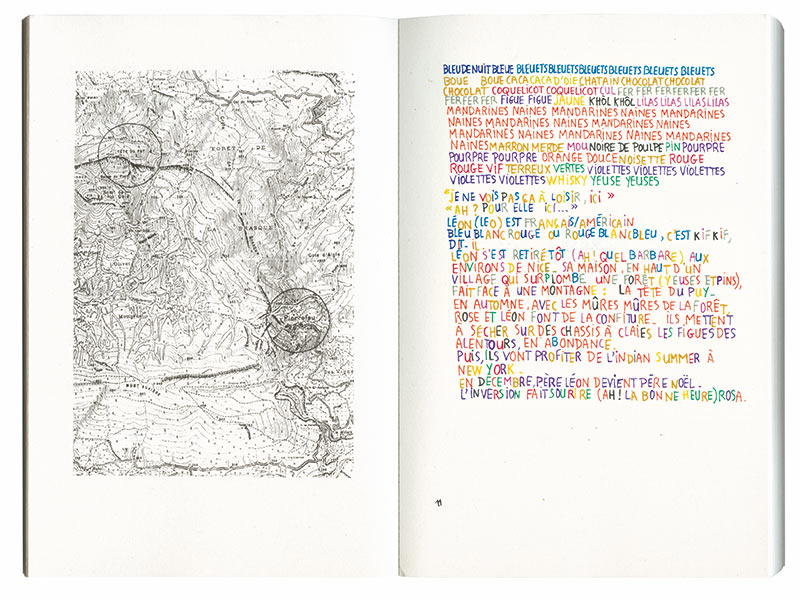 TÊTE DU PUY
FORÊT DE
BRASQUE
BLEU DE NUIT BLEUE BLEUETS BLEUETS BLEUETS BLEUETS BLEUETS BLEUETS
BOUE BOUE CACA CACA D'OIE CHATAIN CHOCOLAT CHOCOLAT
CHOCOLAT COQUELICOT COQUELICOT CUL FER FER FER FER FER FER
FER FER FER FIGUE FIGUE JAUNE KHÔL KHÔL LILAS LILAS LILAS LILAS
MANDARINES NAINES MANDARINES NAINES MANDARINES
NAINES MANDARINES NAINES MANDARINES NAINES
MANDARINES NAINES MANDARINES NAINES MANDARINES
NAINES MARRON MERDE MOU NOIRE DE POULPE PIN POURPRE
POURPRE POURPRE ORANGE DOUCE NOISETTE ROUGE
ROUGE VIF TERREUX VERTES VIOLETTES VIOLETTES VIOLETTES
VIOLETTES VIOLETTES WHISKY YEUSE YEUSES
"JE NE VOIS PAS ÇA À LOISIR, ICI »
« AH ? POUR ELLE ICI... »
LÉON (LEO) EST FRANÇAIS/AMÉRICAIN
BLEU BLANC ROUGE OU ROUGE BLANC BLEU, C'EST KIF KIF,
DIT-IL
LÉON S'EST RETIRÉ TÔT (AH! QUEL BARBARE) AUX
ENVIRONS DE NICE_ SA MAISON, EN HAUT D'UN
VILLAGE QUI SURPLOMBE UNE FORÊT (YEUSES ET PINS),
FAIT FACE À UNE MONTAGNE : LA TÊTE DU PUY_
EN AUTOMNE, AVEC LES MÛRES MÛRES DE LA FORÊT,
ROSE ET LÉON FONT DE LA CONFITURE_ ILS METTENT
A SÉCHER SUR DES CHASSIS À CLAIES LES FIGUES DES
ALENTOURS, EN ABONDANCE.
PUIS, ILS VONT PROFITER DE L'INDIAN SUMMER À
NEW YORK_
EN DÉCEMBRE, PÈRE LÉON DEVIENT PÈRE NOËL_
L'INVERSION FAIT SOURIRE (AH! LA BONNE HEURE) ROSA.
11